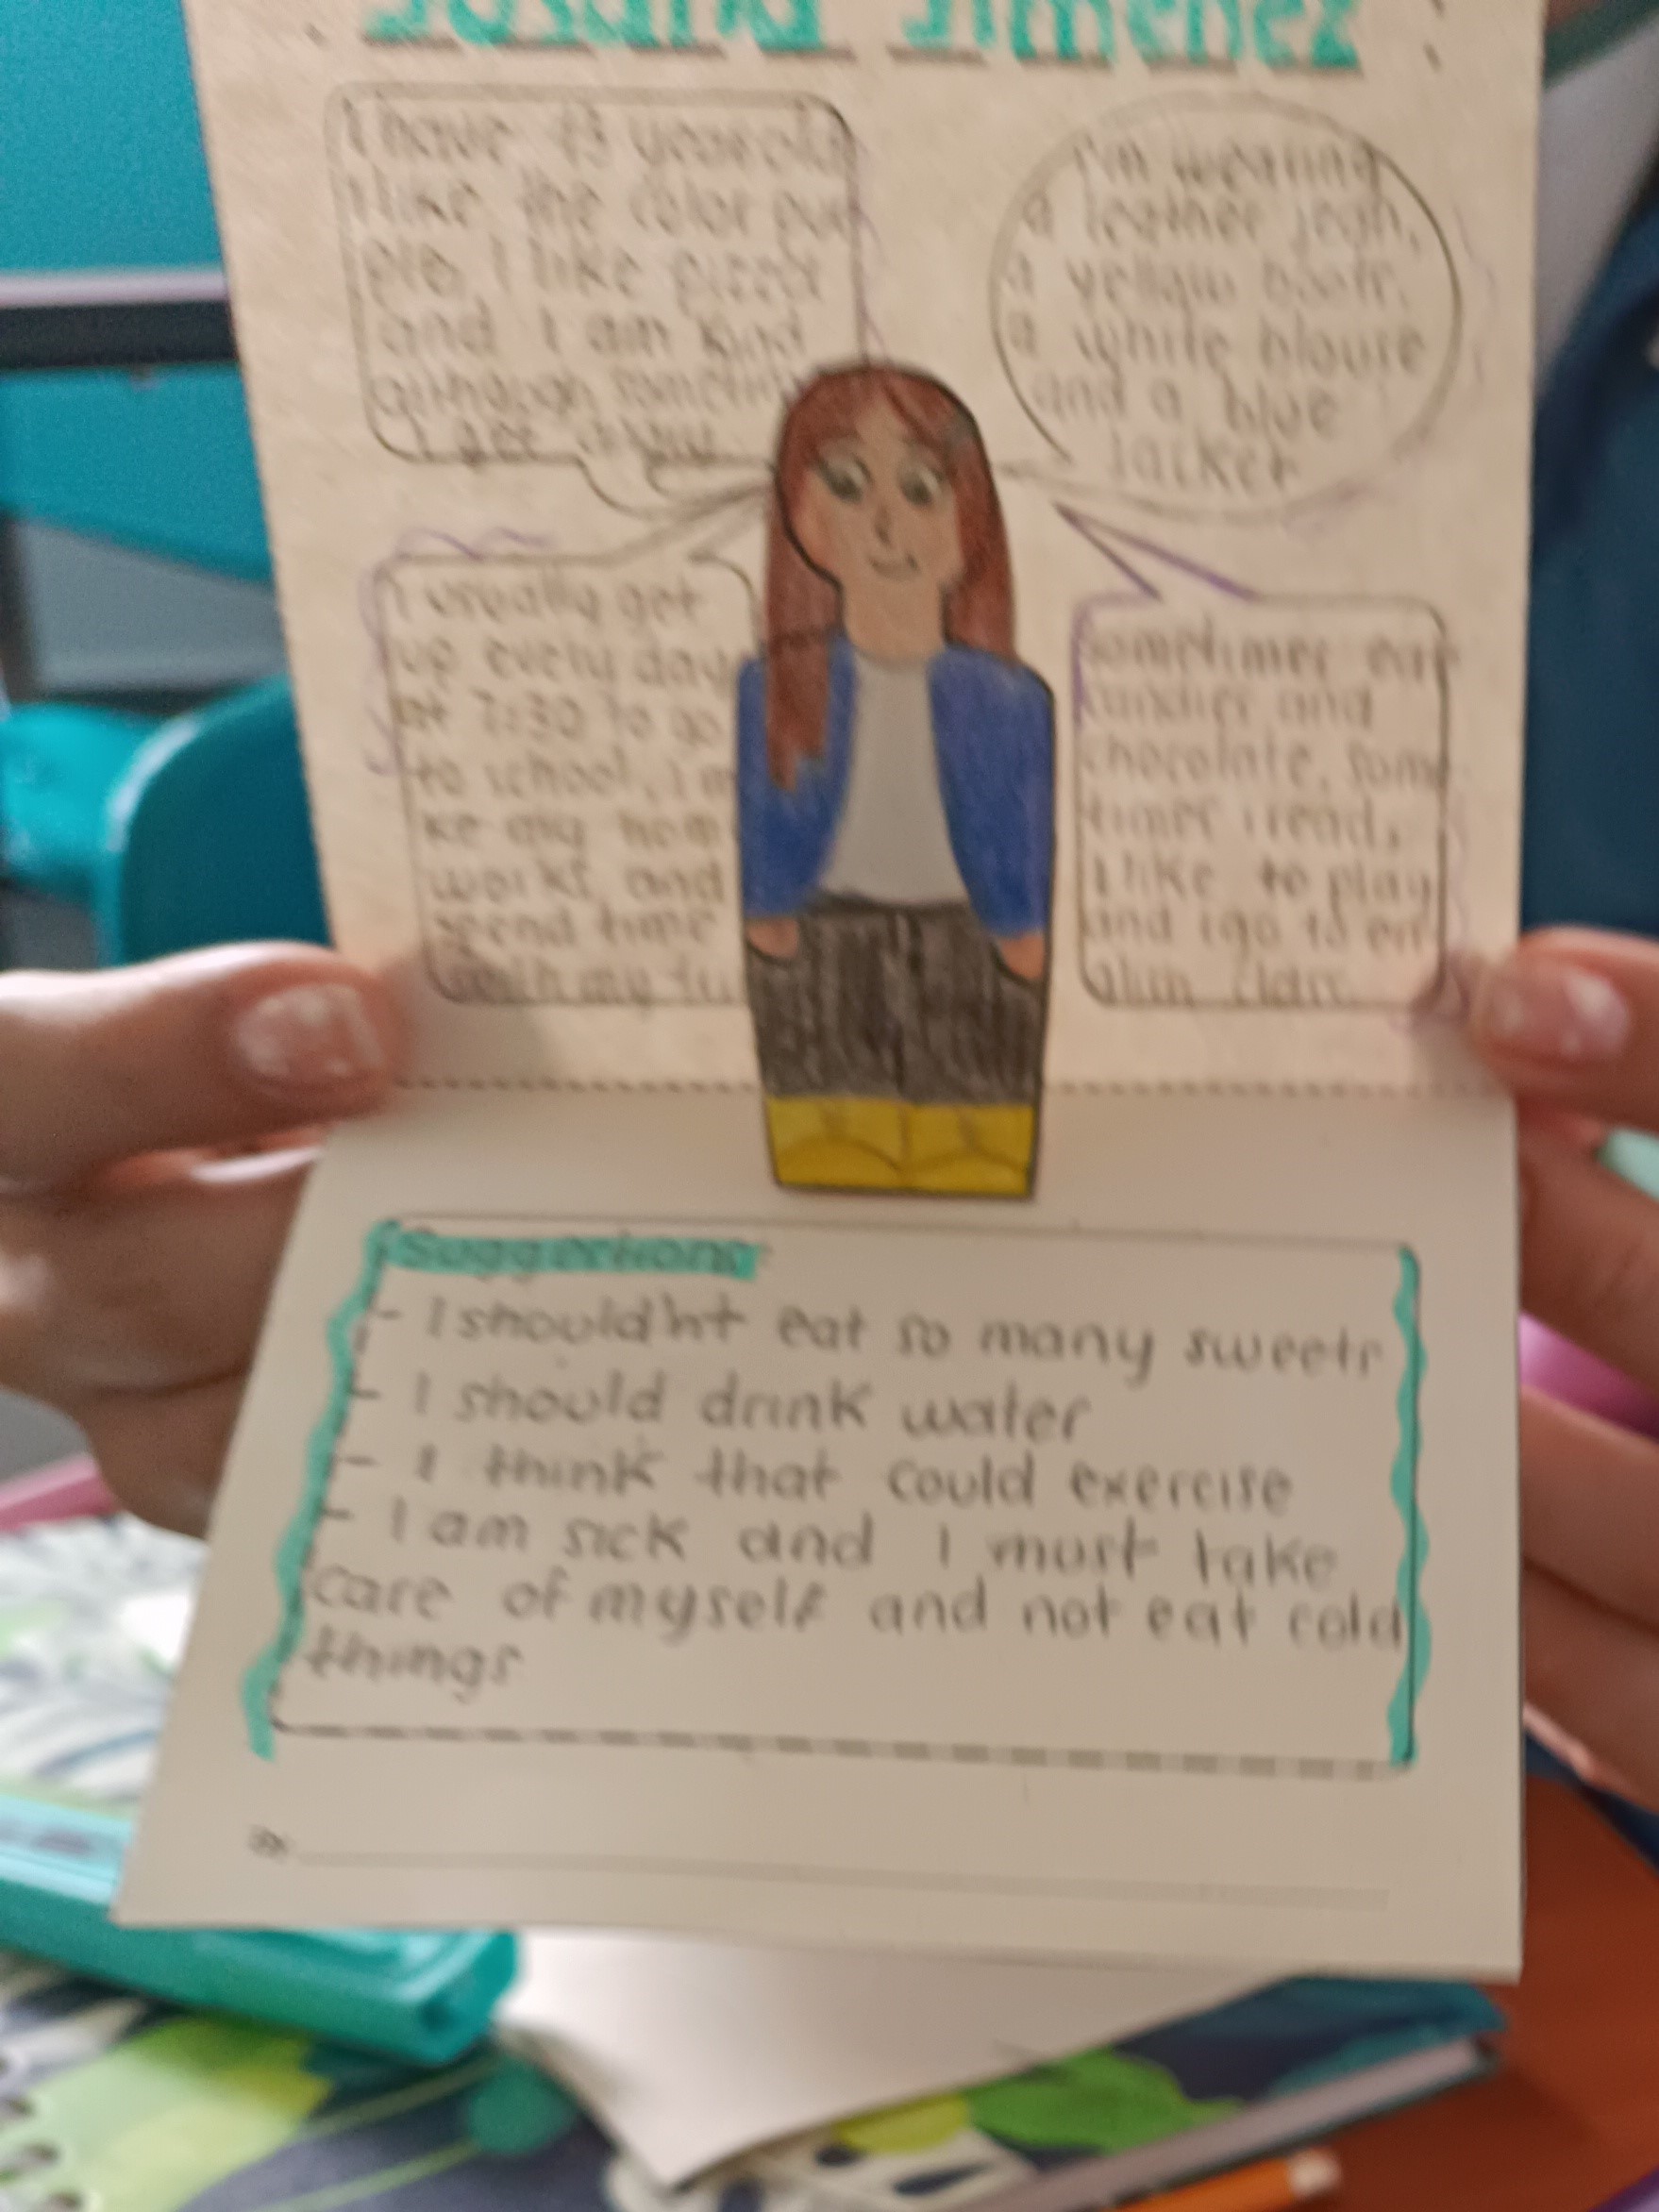 I have 13 year old
I like the color pur
ple, I like pizza
and I am kind
although sometim
I'm wearing
a leather jean,
a yellow boots,
a white blouse
and a blue
Jacket
I usually get
up every day
at 7:30 to go
to school, I m
ke my hom
works, and
spend time
with my
sometimes eat
candies and
chocolate, som
times i read,
I like to play
and i go to en
glish class
Suggestions
- I should'nt eat so many sweets
- I should drink water
- I think that could exercise
- I am sick and I must take
care of myself and not eat cold
things